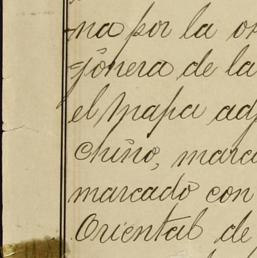 na por la
jonera de la
el mapa
chino,
marcado con
Oriental de